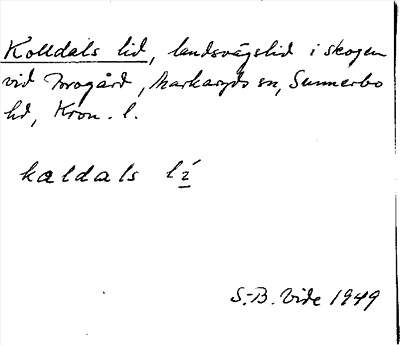 Kolldals lid, landsvägslid i skogen
vid Brogård, Markaryds sn, Sunnerbo
hd, Kron. l.
kaldals lí
S.-B. Vide 1949